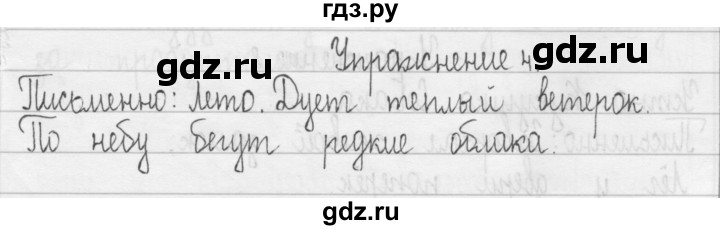 гдз.ру
gdz.ru gdz.ru
Упражнение 4
Письменно: Лето. Дует теплый ветерок.
gdz.ru gdz.ru
По небу бегут редкие облака.
gdz.ru